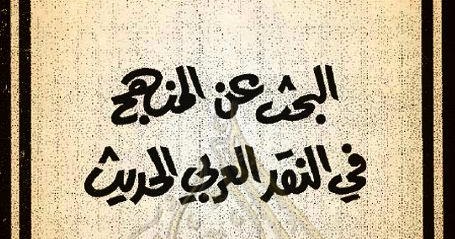 البحث عن المنهج
في النقد العربي الحديث